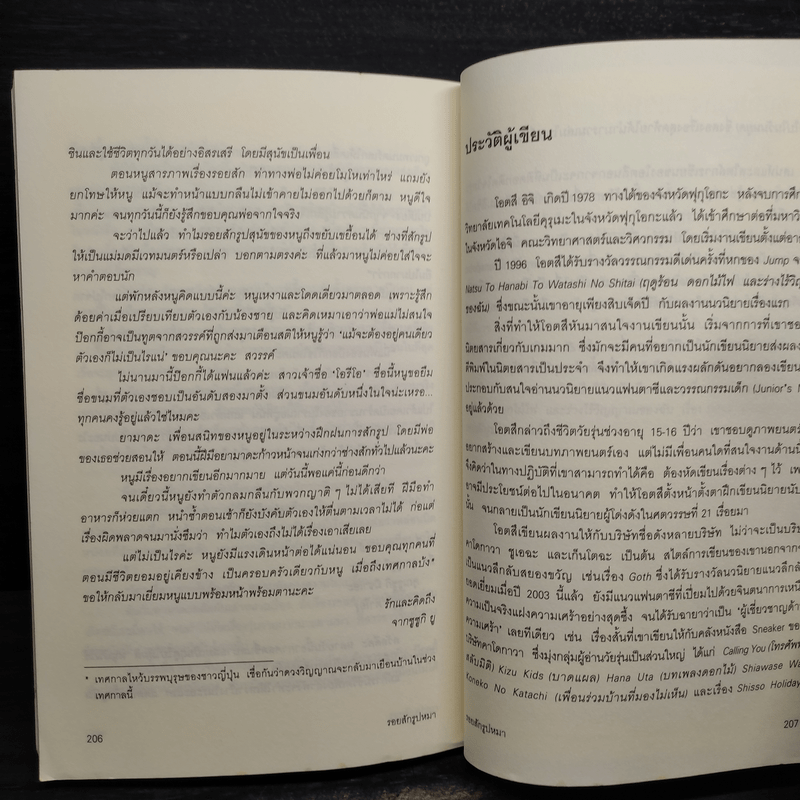 ซินและใช้ชีวิตทุกวันได้อย่างอิสรเสรี โดยมีสุนัขเป็นเพื่อน
ตอนหนูสารภาพเรื่องรอยสัก ท่าทางพ่อไม่ค่อยโมโหเท่าไหร่ แถมยัง
ยกโทษให้หนู แม้จะทำหน้าแบบกลืนไม่เข้าคายไม่ออกไปด้วยก็ตาม หนูดีใจ
มากค่ะ จนทุกวันนี้ก็ยังรู้สึกขอบคุณพ่อจากใจจริง
จะว่าไปแล้ว ทำไมรอยสักรูปสุนัขของหนูถึงขยับเขยื้อนได้ ช่างที่สักรูป
ให้เป็นแม่มดมีเวทมนตร์หรือเปล่า บอกตามตรงค่ะ ที่แล้วมาหนูไม่ค่อยใส่ใจจะ
หาคำตอบนัก
แต่พักหลังหนูคิดแบบนี้ค่ะ หนูเหงาและโดดเดี่ยวมาตลอด เพราะรู้สึก
ด้อยค่าเมื่อเปรียบเทียบตัวเองกับน้องชาย และคิดเหมาเอาว่าพ่อแม่ไม่สนใจ
ป๊อกกี้อาจเป็นทูตจากสวรรค์ที่ถูกส่งมาเตือนสติให้หนูรู้ว่า 'แม้จะต้องอยู่คนเดียว
ตัวเองก็ไม่เป็นไรแน่' ขอบคุณนะคะ สวรรค์
ไม่นานมานี้ป๊อกกี้ได้แฟนแล้วค่ะ สาวเจ้าชื่อ 'โอรีโอ' ชื่อนี้หนูขอยืม
ชื่อขนมที่ตัวเองชอบเป็นอันดับสองมาตั้ง ส่วนขนมอันดับหนึ่งในใจน่ะเหรอ...
ทุกคนคงรู้อยู่แล้วใช่ไหมคะ
ยามาดะ เพื่อนสนิทของหนูอยู่ในระหว่างฝึกฝนการสักรูป โดยมีพ่อ
ของเธอช่วยสอนให้ ตอนนี้ฝีมือยามาดะก้าวหน้าจนเก่งกว่าช่างสักทั่วไปแล้วนะคะ
หนูมีเรื่องอยากเขียนอีกมากมาย แต่วันนี้พอแค่นี้ก่อนดีกว่า
จนเดี๋ยวนี้หนูยังทำตัวกลมกลืนกับพวกญาติ ๆ ไม่ได้เสียที ฝีมือทำ
อาหารก็ห่วยแตก หน้าซ้ำตอนเช้าก็ยังบังคับตัวเองให้ตื่นตามเวลาไม่ได้ ก่อแต่
เรื่องผิดพลาดจนมานั่งซึมว่า ทำไมตัวเองถึงไม่ได้เรื่องเอาเสียเลย
แต่ไม่เป็นไรค่ะ หนูยังมีแรงเดินหน้าต่อได้แน่นอน ขอบคุณทุกคนที่
ตอนมีชีวิตยอมอยู่เคียงข้าง เป็นครอบครัวเดียวกับหนู เมื่อถึงเทศกาลบัง*
ขอให้กลับมาเยี่ยมหนูแบบพร้อมหน้าพร้อมตานะคะ
รักและคิดถึง
จากซูซูกิ ยู
* เทศกาลไหว้บรรพบุรุษของชาวญี่ปุ่น เชื่อกันว่าดวงวิญญาณจะกลับมาเยือนบ้านในช่วง
เทศกาลนี้
รอยสักรูปหมา
206
ประวัติผู้เขียน
โอตสึ อิจิ เกิดปี 1978 ทางใต้ของจังหวัดฟุกุโอกะ หลังจบการศึ
วิทยาลัยเทคโนโลยีคุรุเมะในจังหวัดฟุกุโอกะแล้ว ได้เข้าศึกษาต่อที่มหาวิ
ในจังหวัดไอจิ คณะวิทยาศาสตร์และวิศวกรรม โดยเริ่มงานเขียนตั้งแต่อา
ปี 1996 โอตสึได้รับรางวัลวรรณกรรมดีเด่นครั้งที่หกของ Jump จ
Natsu To Hanabi To Watashi No Shitai (ฤดูร้อน ดอกไม้ไฟ และร่างไร้วิญ
ของฉัน) ซึ่งขณะนั้นเขาอายุเพียงสิบเจ็ดปี กับผลงานนวนิยายเรื่องแรก
สิ่งที่ทำให้โอตสึหันมาสนใจงานเขียนนั้น เริ่มจากการที่เขาชอ
นิตยสารเกี่ยวกับเกมมาก ซึ่งมักจะมีคนที่อยากเป็นนักเขียนนิยายส่งผลง
ตีพิมพ์ในนิตยสารเป็นประจำ จึงทำให้เขาเกิดแรงผลักดันอยากลองเขียน
ประกอบกับสนใจอ่านนวนิยายแนวแฟนตาซีและวรรณกรรมเด็ก (Junior's N
อยู่แล้วด้วย
โอตสึกล่าวถึงชีวิตวัยรุ่นช่วงอายุ 15-16 ปีว่า เขาชอบดูภาพยนตร์
อยากสร้างและเขียนบทภาพยนตร์เอง แต่ไม่มีเพื่อนคนใดที่สนใจงานด้านนี้
จึงคิดว่าในทางปฏิบัติที่เขาสามารถทำได้คือ ต้องหัดเขียนเรื่องต่าง ๆ ไว้ เพ
อาจมีประโยชน์ต่อไปในอนาคต ทำให้โอตสึตั้งหน้าตั้งตาฝึกเขียนนิยายนับ
นั้น จนกลายเป็นนักเขียนนิยายผู้โด่งดังในศตวรรษที่ 21 เรื่อยมา
โอตสึเขียนผลงานให้กับบริษัทชื่อดังหลายบริษัท ไม่ว่าจะเป็นบริษ
คาโดกาวา ชูเอฉะ และเก็นโตฉะ เป็นต้น สไตล์การเขียนของเขานอกจาก
เป็นแนวลึกลับสยองขวัญ เช่นเรื่อง Goth ซึ่งได้รับรางวัลนวนิยายแนวลึกลับ
ยอดเยี่ยมเมื่อปี 2003 นี้แล้ว ยังมีแนวแฟนตาซีที่เปี่ยมไปด้วยจินตนาการเหนื
ความเป็นจริงแฝงความเศร้าอย่างสุดซึ้ง จนได้รับฉายาว่าเป็น 'ผู้เชี่ยวชาญด้า
ความเศร้า' เลยทีเดียว เช่น เรื่องสั้นที่เขาเขียนให้กับคลังหนังสือ Sneaker ขอ
บริษัทคาโดกาวา ซึ่งมุ่งกลุ่มผู้อ่านวัยรุ่นเป็นส่วนใหญ่ ได้แก่ Calling You (โทรศัพท์
คลับมิติ) Kizu Kids (บาดแผล) Hana Uta (บทเพลงดอกไม้) Shiawase Wa
Koneko No Katachi (เพื่อนร่วมบ้านที่มองไม่เห็น) และเรื่อง Shisso Holiday
รอยสักรูปหมา
207